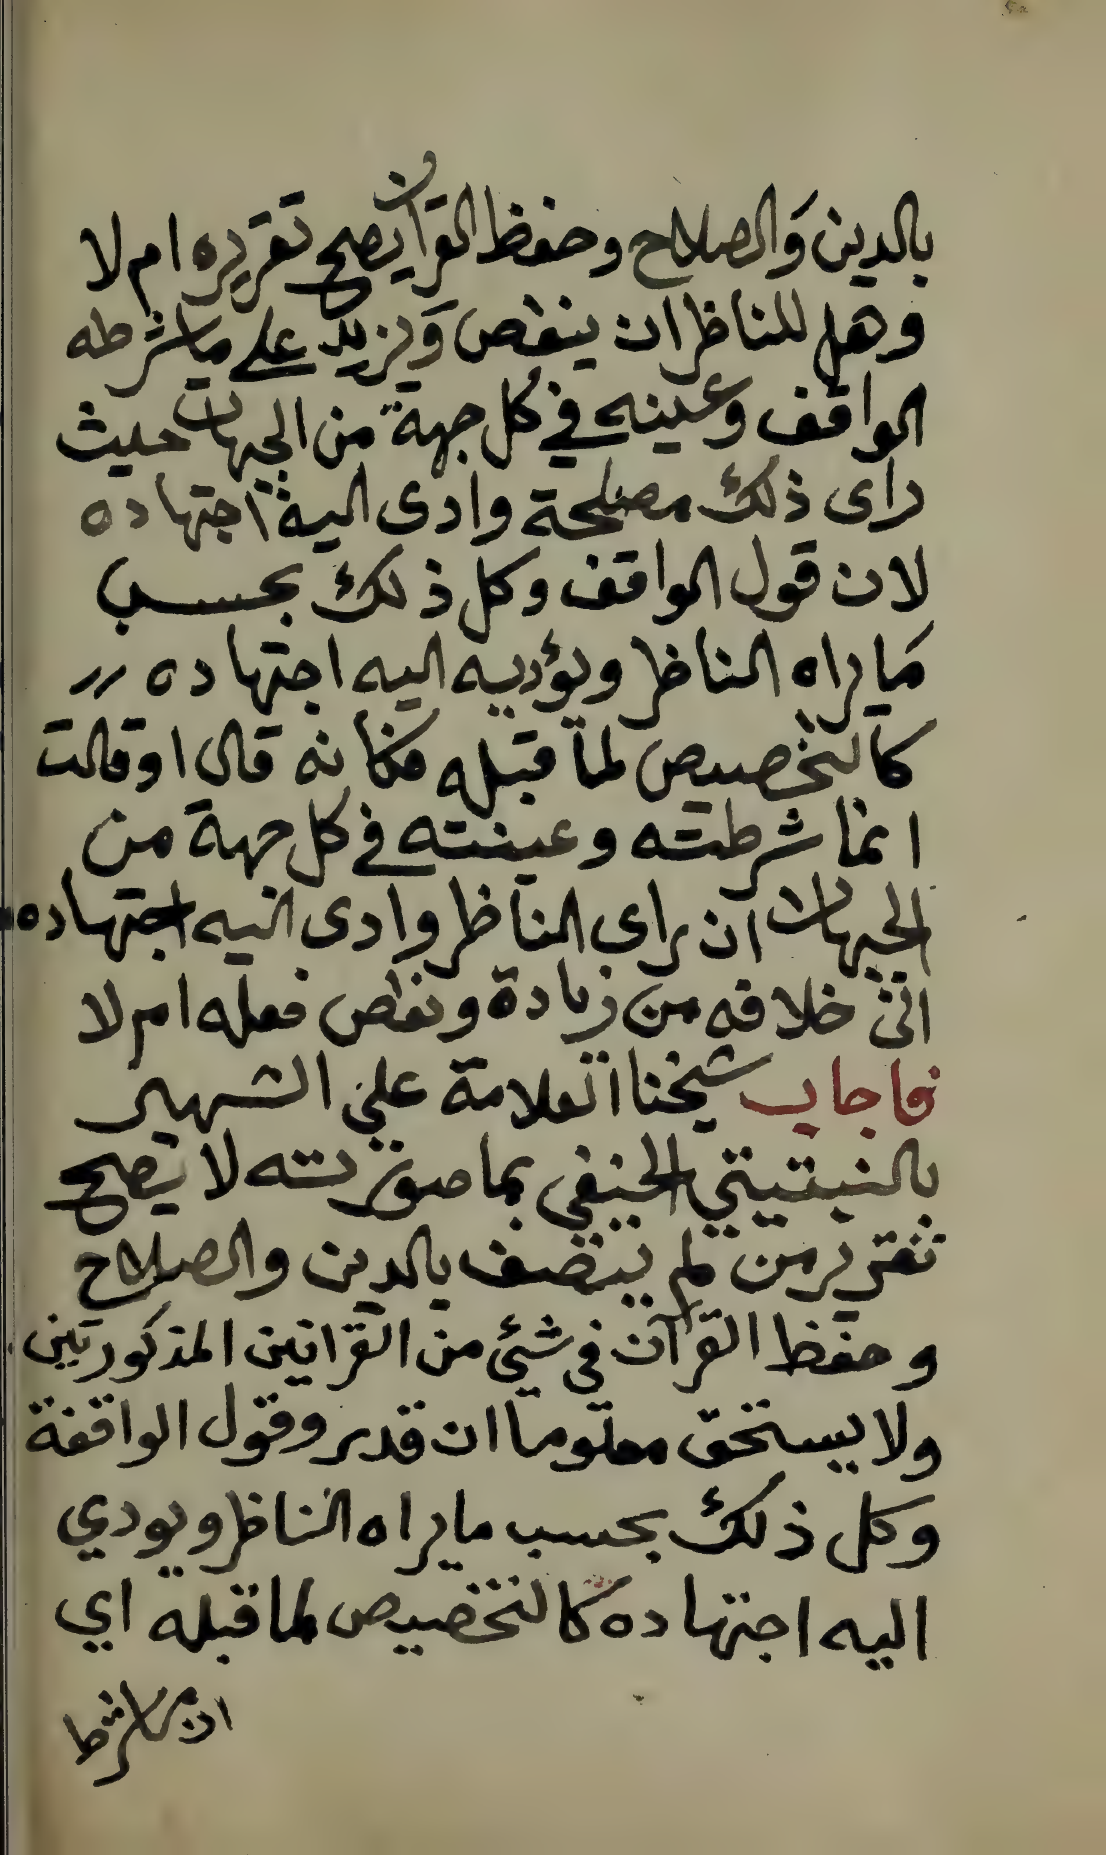 بالدين والصلاح وحفظ القران يصح تقريره ام لا
وهل للناظر ان ينقص ويزيد على ما شرطه
الواقف وعينه في كل جهة من الجهات حيث
راى ذلك مصلحة وادى اليه اجتهاده
لان قول الواقف وكل ذلك بحسب
ما يراه الناظر ويؤديه اليه اجتهاده
كالتخصيص لما قبله فكانه قال او قالت
انما شرطته وعينته في كل جهة من
الجهات ان راى الناظر وادى اليه اجتهاده
الى خلافه من زيادة ونقص فعله ام لا
فاجاب شيخنا العلامة علي الشهير
بالنبتيتي الحنفي بما صورته لا يصح
تقرير من لم يتصف بالدين والصلاح
وحفظ القرآن في شئ من القرائتين المذكورتين
ولا يستحق معلوما ان قدر وقول الواقفة
وكل ذلك بحسب ما يراه الناظر ويودي
اليه اجتهاده كالتخصيص لما قبله اي
ان ما شرطا